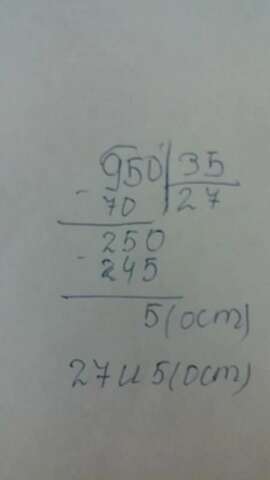 950 35
- 70 27
250
- 245
5 (ост)
27 и 5 (ост)